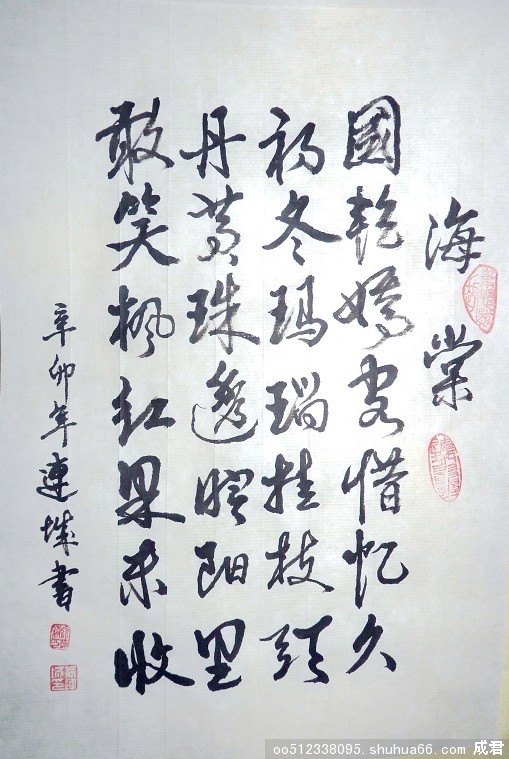 海棠
國艳嬌容惜忆久
初冬玛瑙挂枝頭
丹黄珠邀阳里
敢笑枫红果未收
辛卯年連城書
oo512338095.shuhua66.com 成君